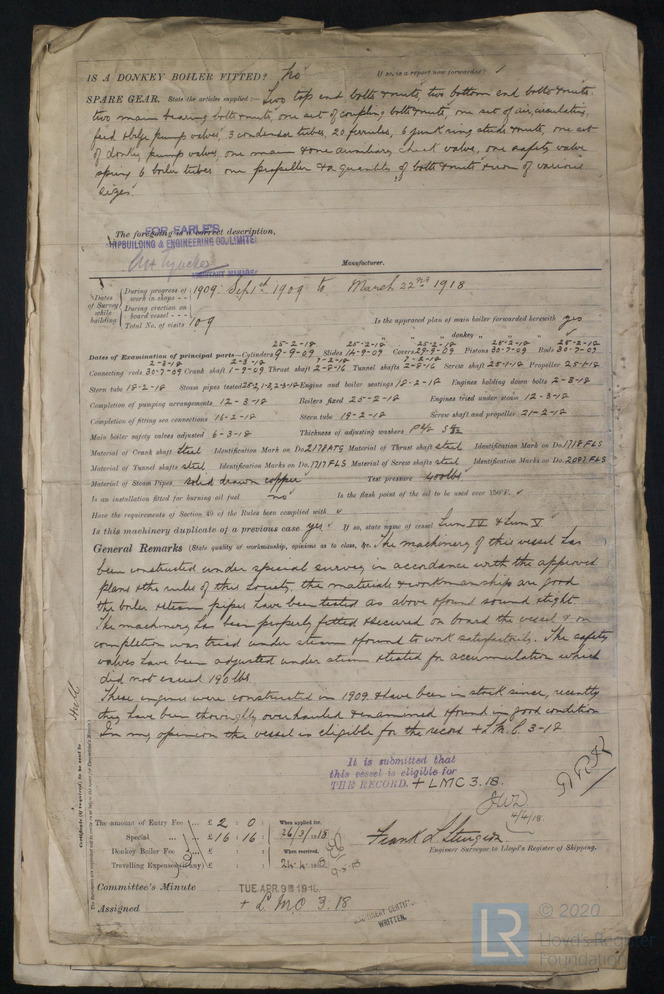 IS A DONKEY BOILER FITTED? no If so, is a report now forwarded? /
SPARE GEAR. State the articles supplied:— Two top end bolts & nuts, two bottom end bolts & nuts
two main bearing bolts & nuts, one set of coupling bolts & nuts, one set of air, circulating,
feed & bilge pump valves, 3 condenser tubes, 20 ferrules, 6 junk ring studs & nuts, one set
of donkey pump valves, one main & one auxiliary check valve, one safety valve
spring 6 boiler tubes one propeller & a quantity of bolts & nuts & iron of various
sizes.
The foregoing is a correct description,
FOR EARLE'S
SHIPBUILDING & ENGINEERING CO., LIMITED
ASSISTANT MANAGER
Manufacturer.
Dates of Survey while building
During progress of work in shops - - 1909. Sept 1st 1909 to March 22nd 1918
During erection on board vessel - - -
Total No. of visits 109
Is the approved plan of main boiler forwarded herewith yes
" " " donkey " " "
25-2-18 25-2-18 25-2-18 25-2-18 25-2-18
Dates of Examination of principal parts—Cylinders 9-9-09 Slides 14-9-09 Covers 29-9-09 Pistons 30-7-09 Rods 30-7-09
2-3-18 2-3-18 7-2-18 7-2-18
Connecting rods 30-7-09 Crank shaft 1-9-09 Thrust shaft 2-8-16 Tunnel shafts 2-8-16 Screw shaft 25-1-18 Propeller 25-1-18
Stern tube 18-2-18 Steam pipes tested 25-2, 1-3, 2-3-18 Engine and boiler seatings 18-2-18 Engines holding down bolts 2-3-18
Completion of pumping arrangements 12-3-18 Boilers fixed 25-2-18 Engines tried under steam 12-3-18
Completion of fitting sea connections 16-2-18 Stern tube 18-2-18 Screw shaft and propeller 21-2-18
Main boiler safety valves adjusted 6-3-18 Thickness of adjusting washers
Material of Crank shaft steel Identification Mark on Do. 2178 ATG Material of Thrust shaft steel Identification Mark on Do. 1718 FLS
Material of Tunnel shafts steel Identification Marks on Do. 1717 FLS Material of Screw shafts steel Identification Marks on Do. 2087 FLS
Material of Steam Pipes solid drawn copper Test pressure 400 lbs
Is an installation fitted for burning oil fuel no Is the flash point of the oil to be used over 150°F.
Have the requirements of Section 49 of the Rules been complied with
Is this machinery duplicate of a previous case yes If so, state name of vessel
General Remarks (State quality of workmanship, opinions as to class, &c. The machinery of this vessel has
been constructed under special survey in accordance with the approved
plans & the rules of this Society, the materials & workmanship are good
the boiler & steam pipes have been tested as above & found sound & tight.
The machinery has been properly fitted & secured on board the vessel & on
completion was tried under steam & found to work satisfactorily. The safety
valves have been adjusted under steam & tested for accumulation which
did not exceed 190 lbs
These engines were constructed in 1909 & have been in stock since, recently
they have been thoroughly overhauled & examined & found in good condition
In my opinion the vessel is eligible for the record + L.M.C. 3-18
It is submitted that
this vessel is eligible for
THE RECORD. + LMC 3.18.
4/4/18.
Hull
Certificate (if required) to be sent to
The amount of Entry Fee ... £ 2 : 0 : When applied for,
Special ... £ 16 : 16 : 26/3/1918
Donkey Boiler Fee ... £ : : When received,
Travelling Expenses (if any) £ : : 24-4-18
Frank L. Sturgeon
Engineer Surveyor to Lloyd's Register of Shipping.
Committee's Minute TUE. APR. 9 1918
Assigned + LMC 3.18
WRITTEN.
LR © 2020
Lloyd's Register
Foundation